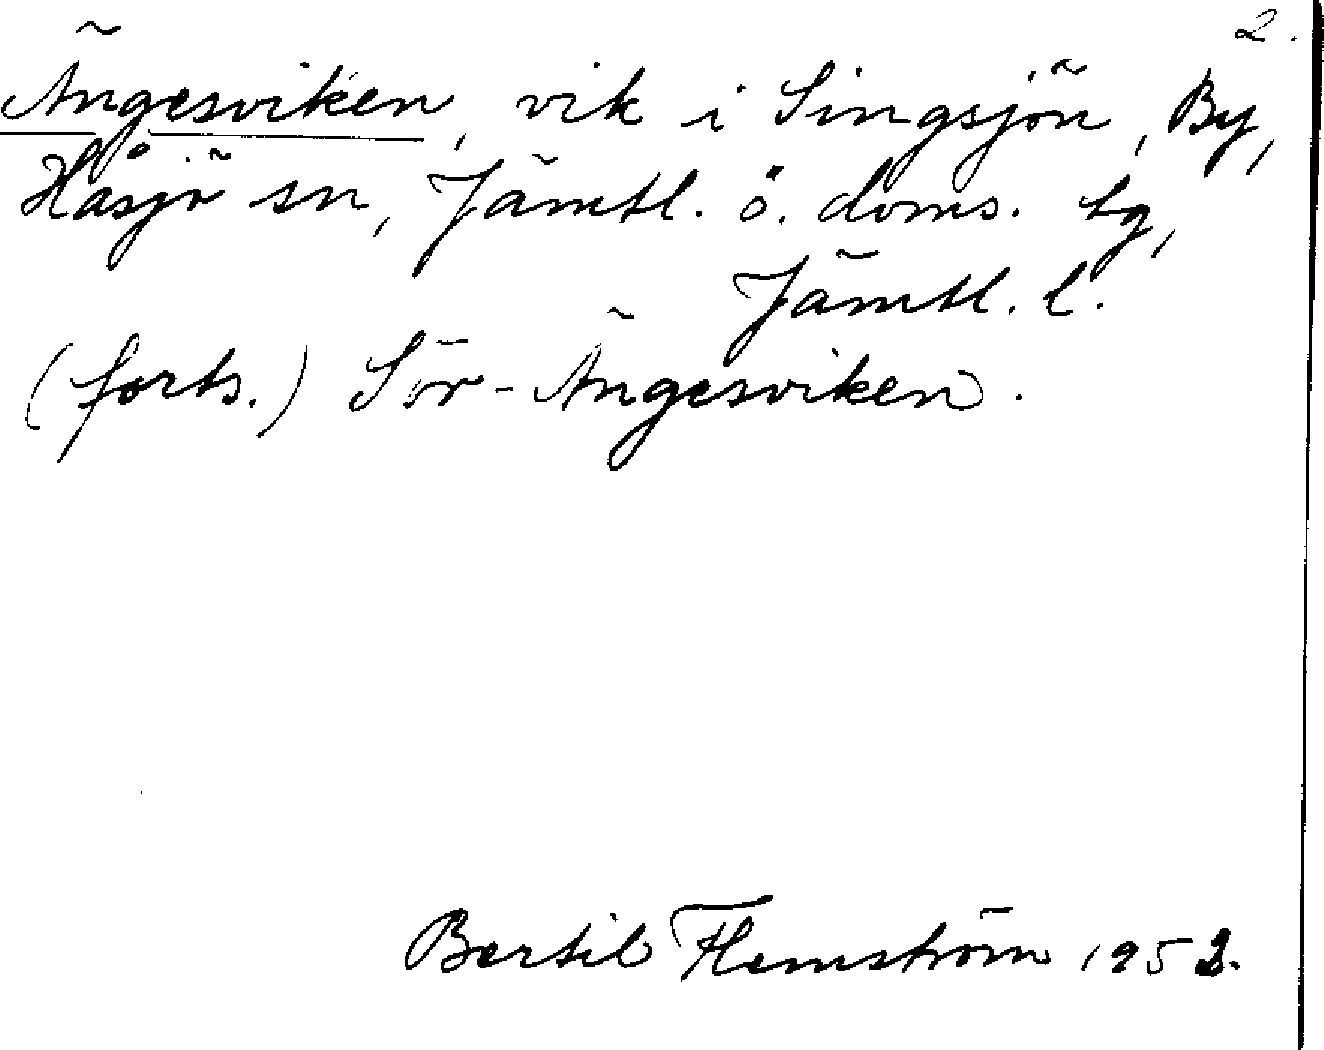 2.
Ängesviken, vik i Singsjön, By,
Håsjö sn, Jämtl. ö. doms. tg,
Jämtl. l.
(forts.) Sör-Ängesviken.
Bertil Flemström 1952.